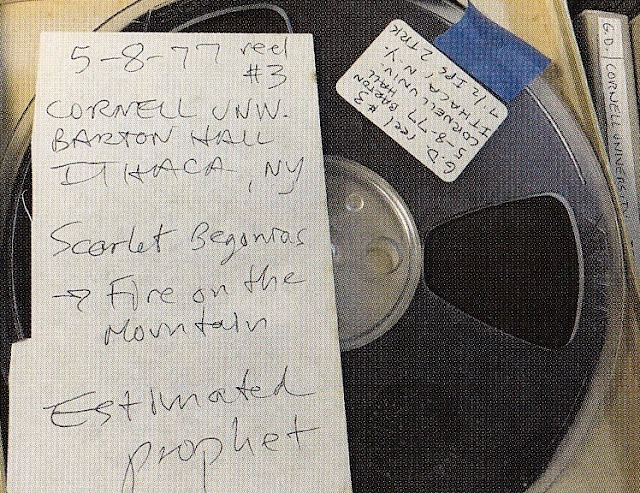 5-8-77 reel
#3
CORNELL UNIV.
BARTON HALL
ITHACA, NY
Scarlet Begonias
→ Fire on the
Mountain
Estimated
prophet
G.D. reel #3
5-8-77 BARTON
HALL
CORNELL UNIV.
ITHACA, N.Y.
7 1/2 IPS 2TRK
G.D. | CORNELL UNIVERSITY